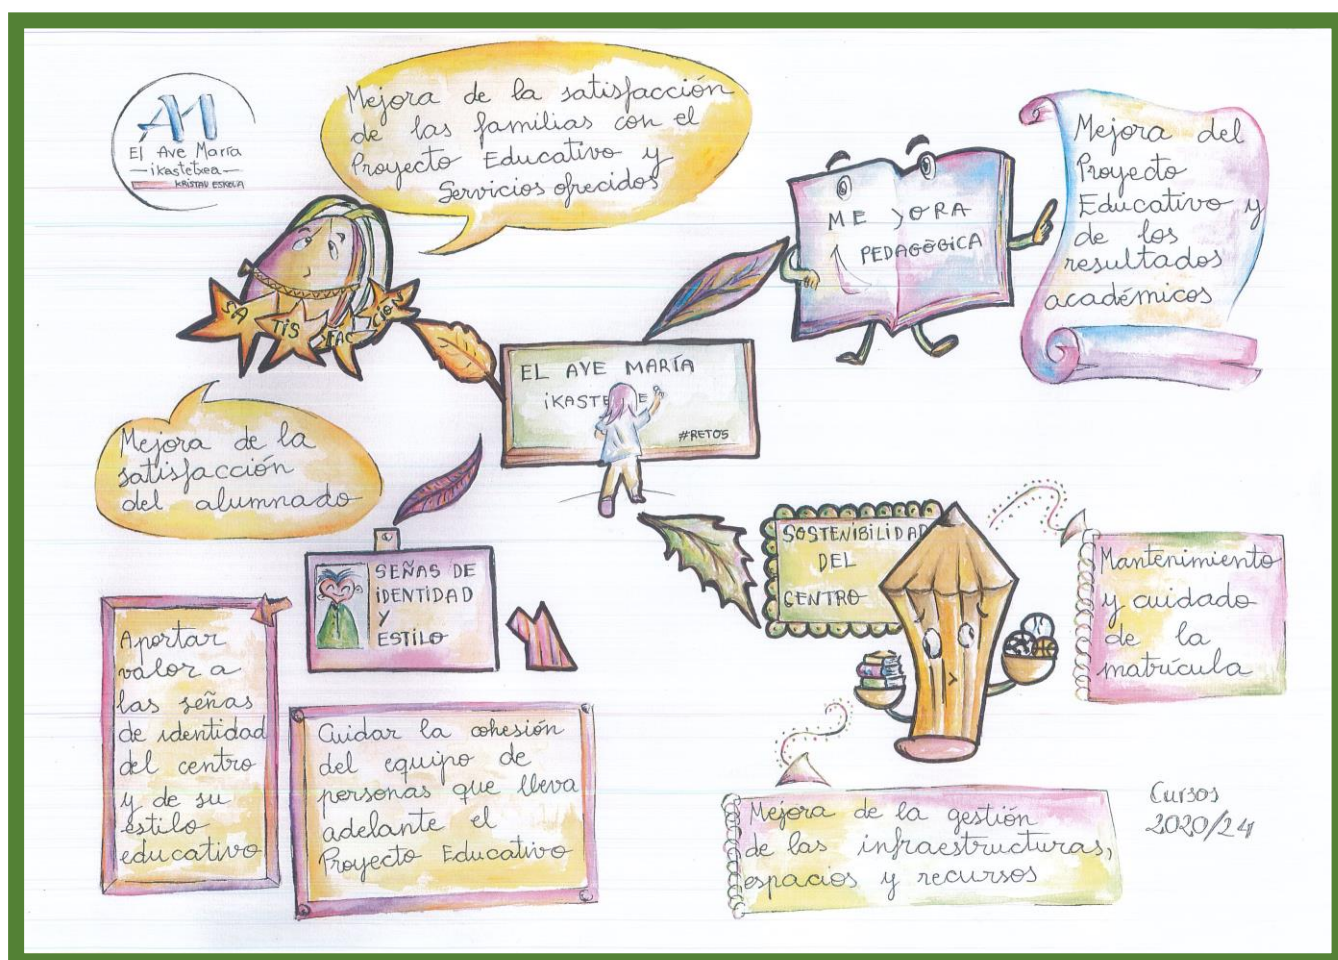 AM
El Ave María
-ikastetxea-
KRISTAU ESKOLA
Mejora de la satisfacción
de las familias con el
Proyecto Educativo y
Servicios ofrecidos
SA
TIS
FAC
CIÓN
ME JORA
PEDAGÓGICA
Mejora del
Proyecto
Educativo y
de los
resultados
académicos
EL AVE MARÍA
iKASTE E
#RETOS
Mejora de la
satisfacción
del alumnado
SEÑAS DE
iDENTiDAD
Y
ESTiLO
Aportar
valor a
las señas
de identidad
del centro
y de su
estilo
educativo
Cuidar la cohesión
del equipo de
personas que lleva
adelante el
Proyecto Educativo
SOSTENiBiLiDAD
DEL
CENTRO
Mantenimiento
y cuidado
de la
matrícula
Mejora de la gestión
de las infraestructuras,
espacios y recursos
Cursos
2020/24